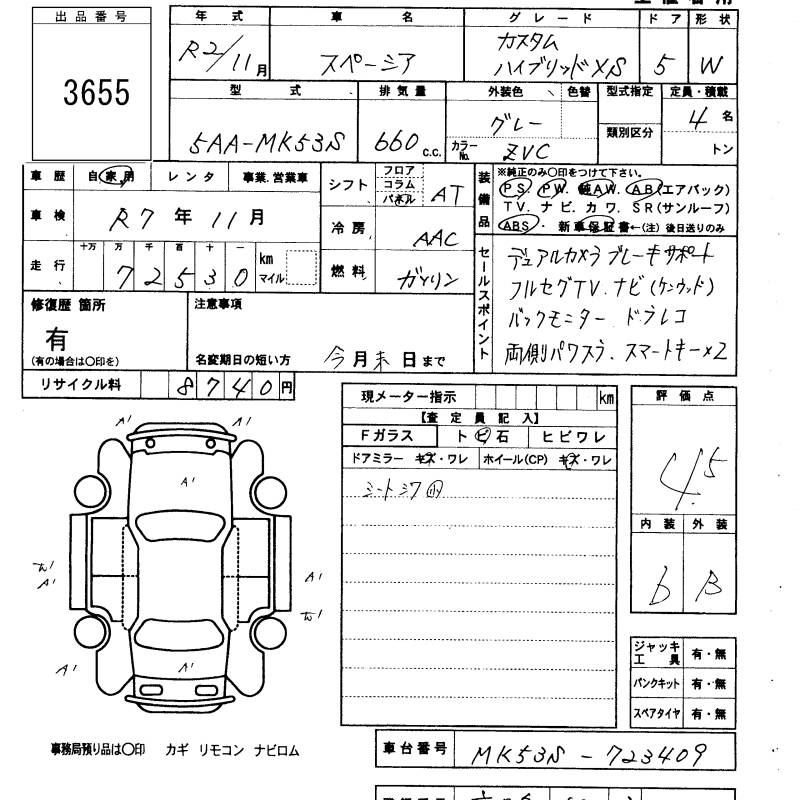 出品番号
3655
年式 車名 グレード ドア 形状
R2/11月 スペーシア カスタム ハイブリッドXS 5 W
型式 排気量 外装色 色替 型式指定 定員・積載
5AA-MK53S 660 c.c. グレー 4名
カラーNo. ZVC 類別区分 トン
車歴 自家用 レンタ 事業.営業車
シフト フロア コラム パネル AT
車検 R7年11月
冷房 AAC
走行 十万 万 千 百 十 一
72530 km マイル
燃料 ガソリン
装備品
※純正のみ○印をつけて下さい。
PS. PW. 純AW. AB(エアバック)
TV. ナビ. カワ. SR(サンルーフ)
ABS ・ 新車保証書←(注)後日送りのみ
セールスポイント
デュアルカメラブレーキサポート
フルセグTV.ナビ(ケンウッド)
バックモニター ドラレコ
両側パワスラ. スマートキー×2
修復歴 箇所
有
(有の場合は○印を)
注意事項
名変期日の短い方 今月末日まで
リサイクル料 8740円
現メーター指示 km
【査定員記入】
Fガラス トビ石 ヒビワレ
ドアミラー キズ・ワレ ホイール(CP) キズ・ワレ
シートシワ小
評価点
4.5
内装 外装
b B
A' A'
A'
A'
A'
A'
A' A'
ジャッキ工具 有・無
パンクキット 有・無
スペアタイヤ 有・無
事務局預り品は○印 カギ リモコン ナビロム
車台番号 MK53S-723409